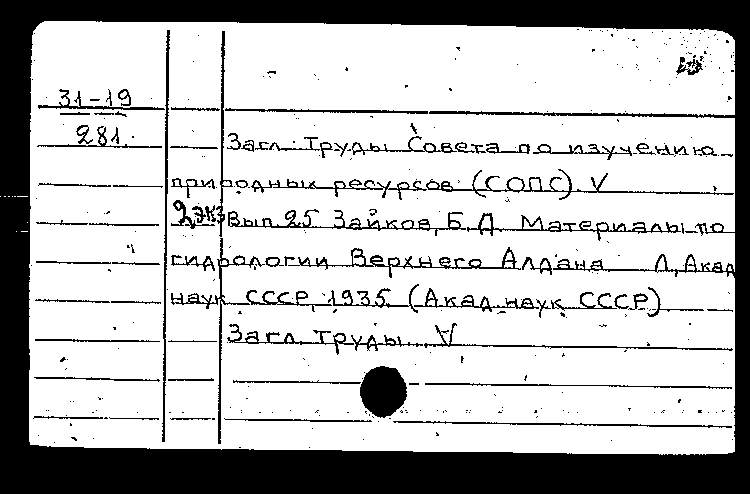 31-19
281.
Загл: Труды Совета по изучению
природных ресурсов (СОПС). V
2 экз Вып. 25 Зайков, Б. Д. Материалы по
гидрологии Верхнего Алдана Л., Акад
наук СССР, 1935. (Акад. наук СССР)
Загл. Труды... V